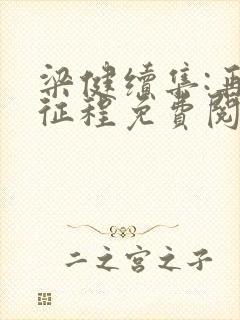 梁健续集:再
征程免費閱
二之宫之子